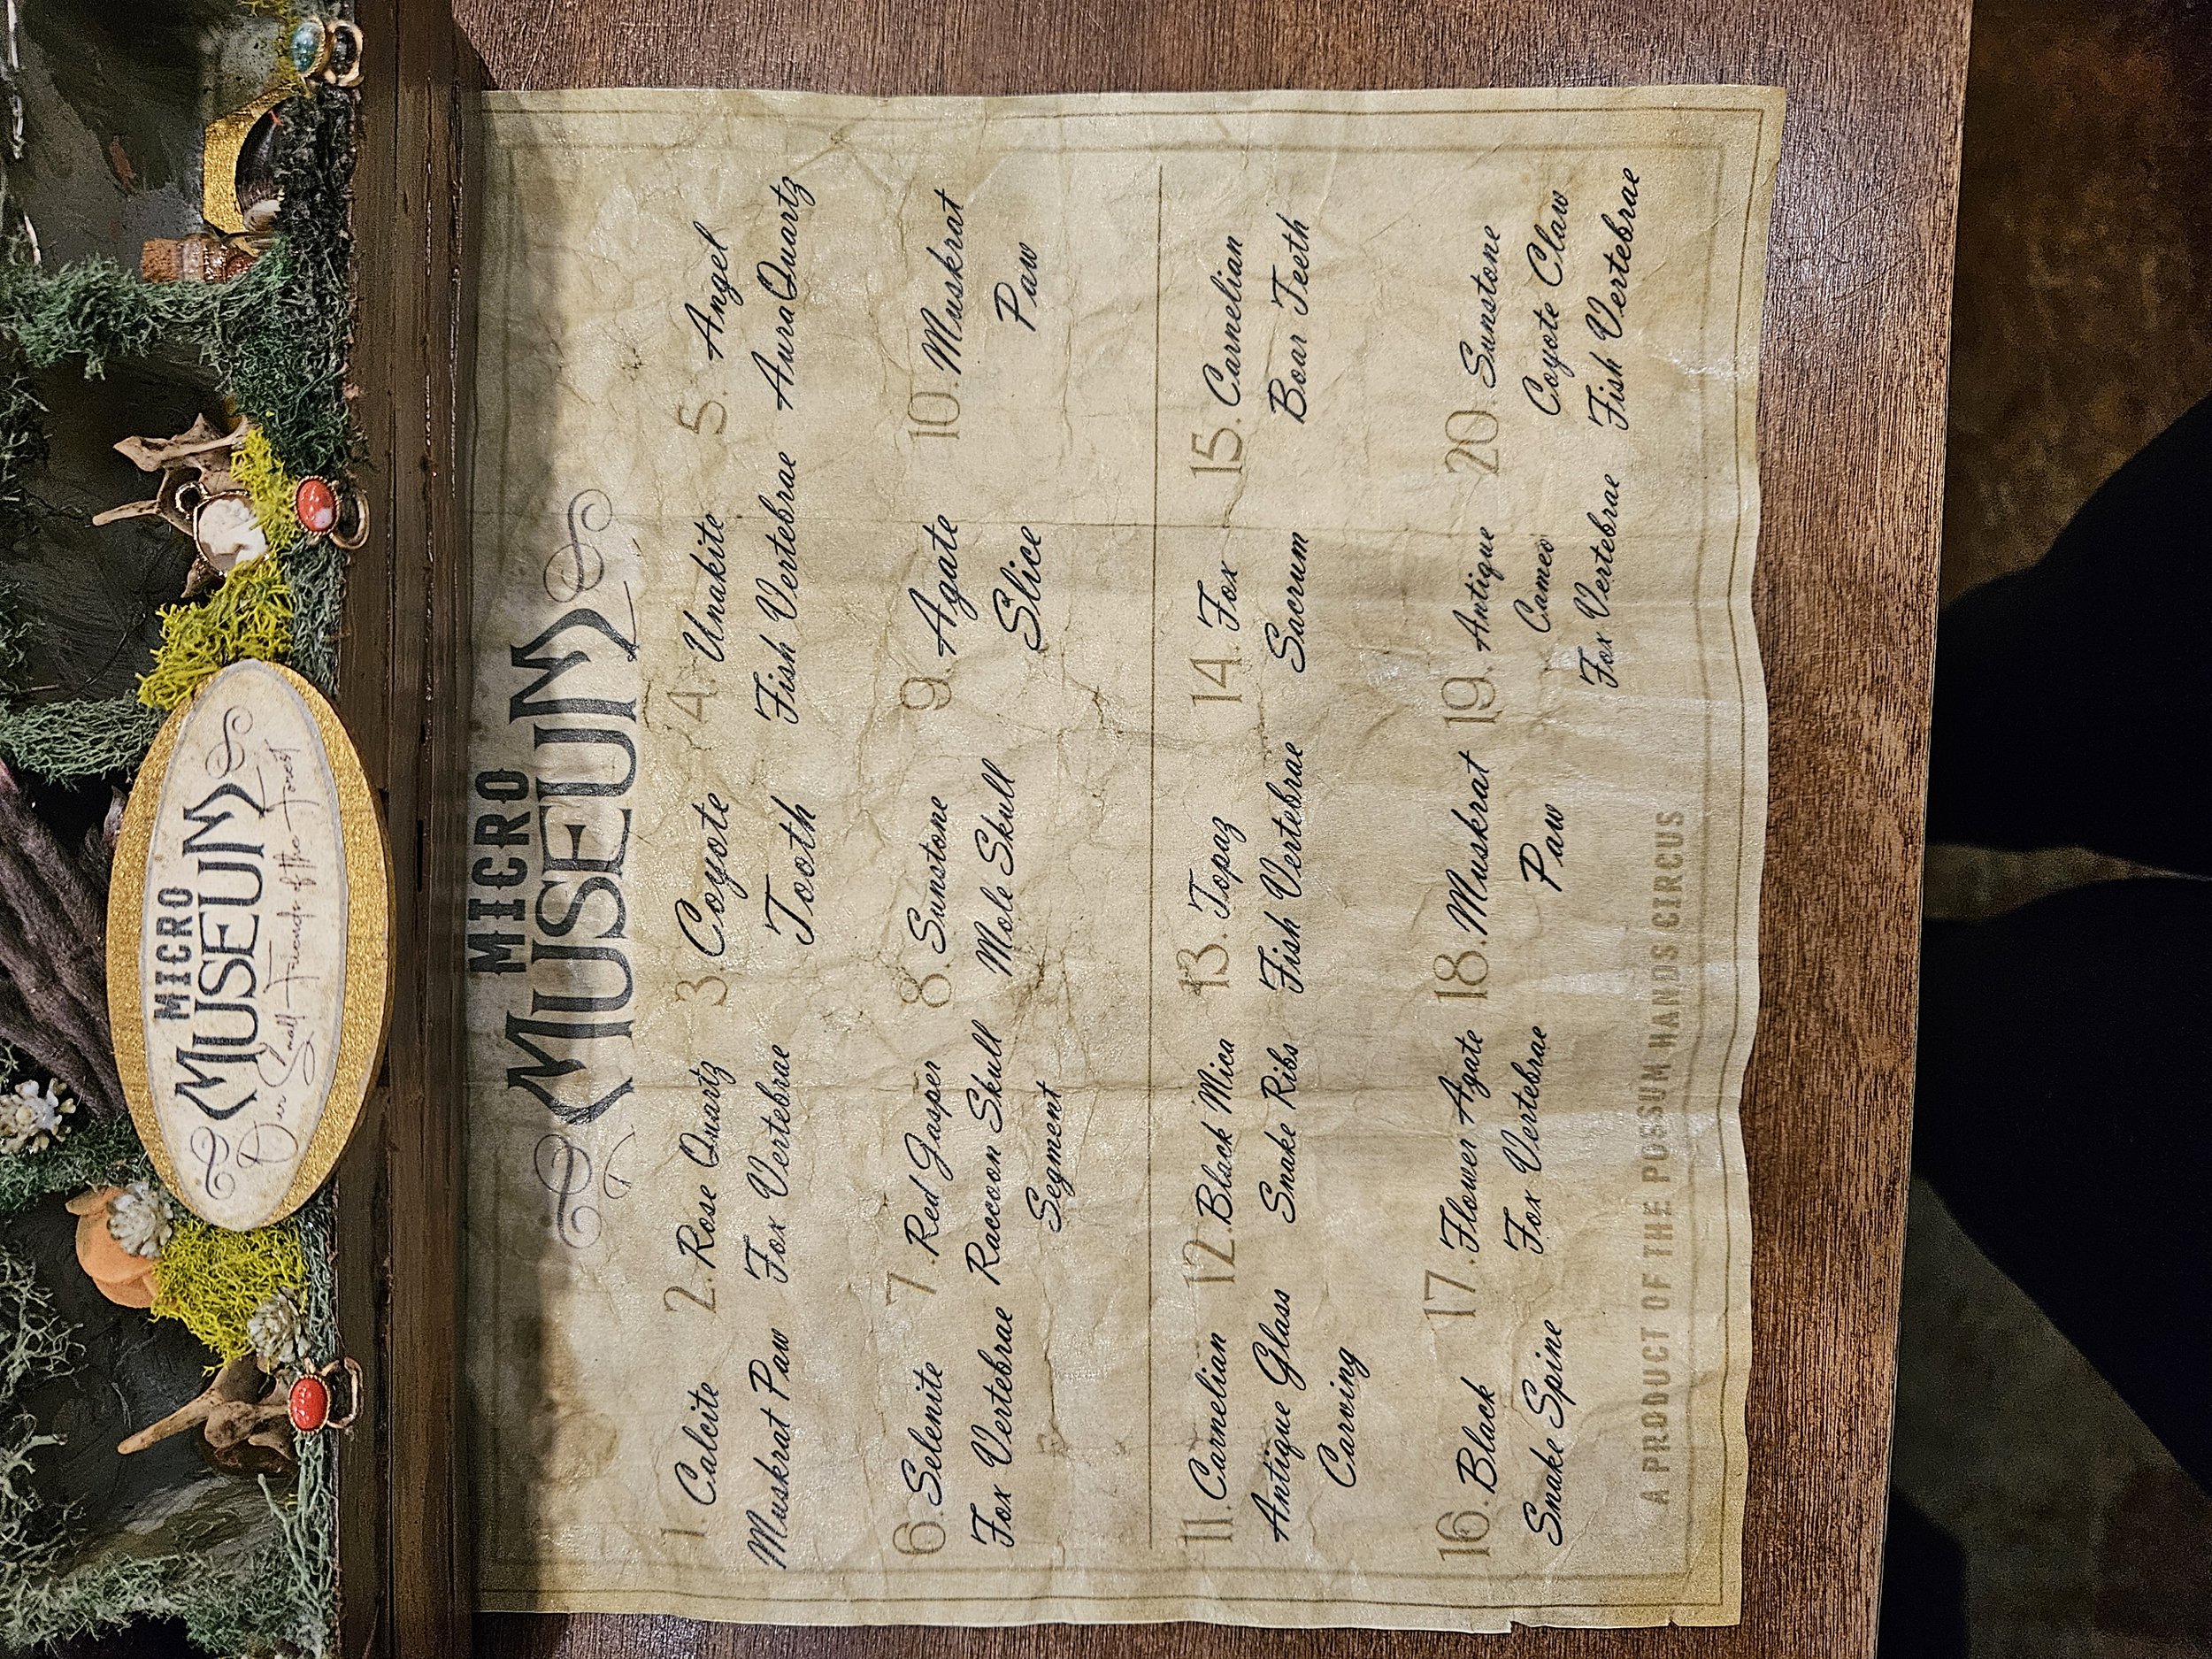 MICRO
MUSEUM
Our Small Friends of the Forest
MICRO
MUSEUM
1. Calcite
Muskrat Paw
2. Rose Quartz
Fox Vertebrae
3. Coyote
Tooth
4. Unakite
Fish Vertebrae
5. Angel
Aura Quartz
6. Selenite
Fox Vertebrae
7. Red Jasper
Raccoon Skull
Segment
8. Sunstone
Mole Skull
9. Agate
Slice
10. Muskrat
Paw
11. Carnelian
Antique Glass
Carving
12. Black Mica
Snake Ribs
13. Topaz
Fish Vertebrae
14. Fox
Sacrum
15. Carnelian
Boar Teeth
16. Black
Snake Spine
17. Flower Agate
Fox Vertebrae
18. Muskrat
Paw
19. Antique
Cameo
Fox Vertebrae
20. Sunstone
Coyote Claw
Fish Vertebrae
A PRODUCT OF THE POSSUM HANDS CIRCUS